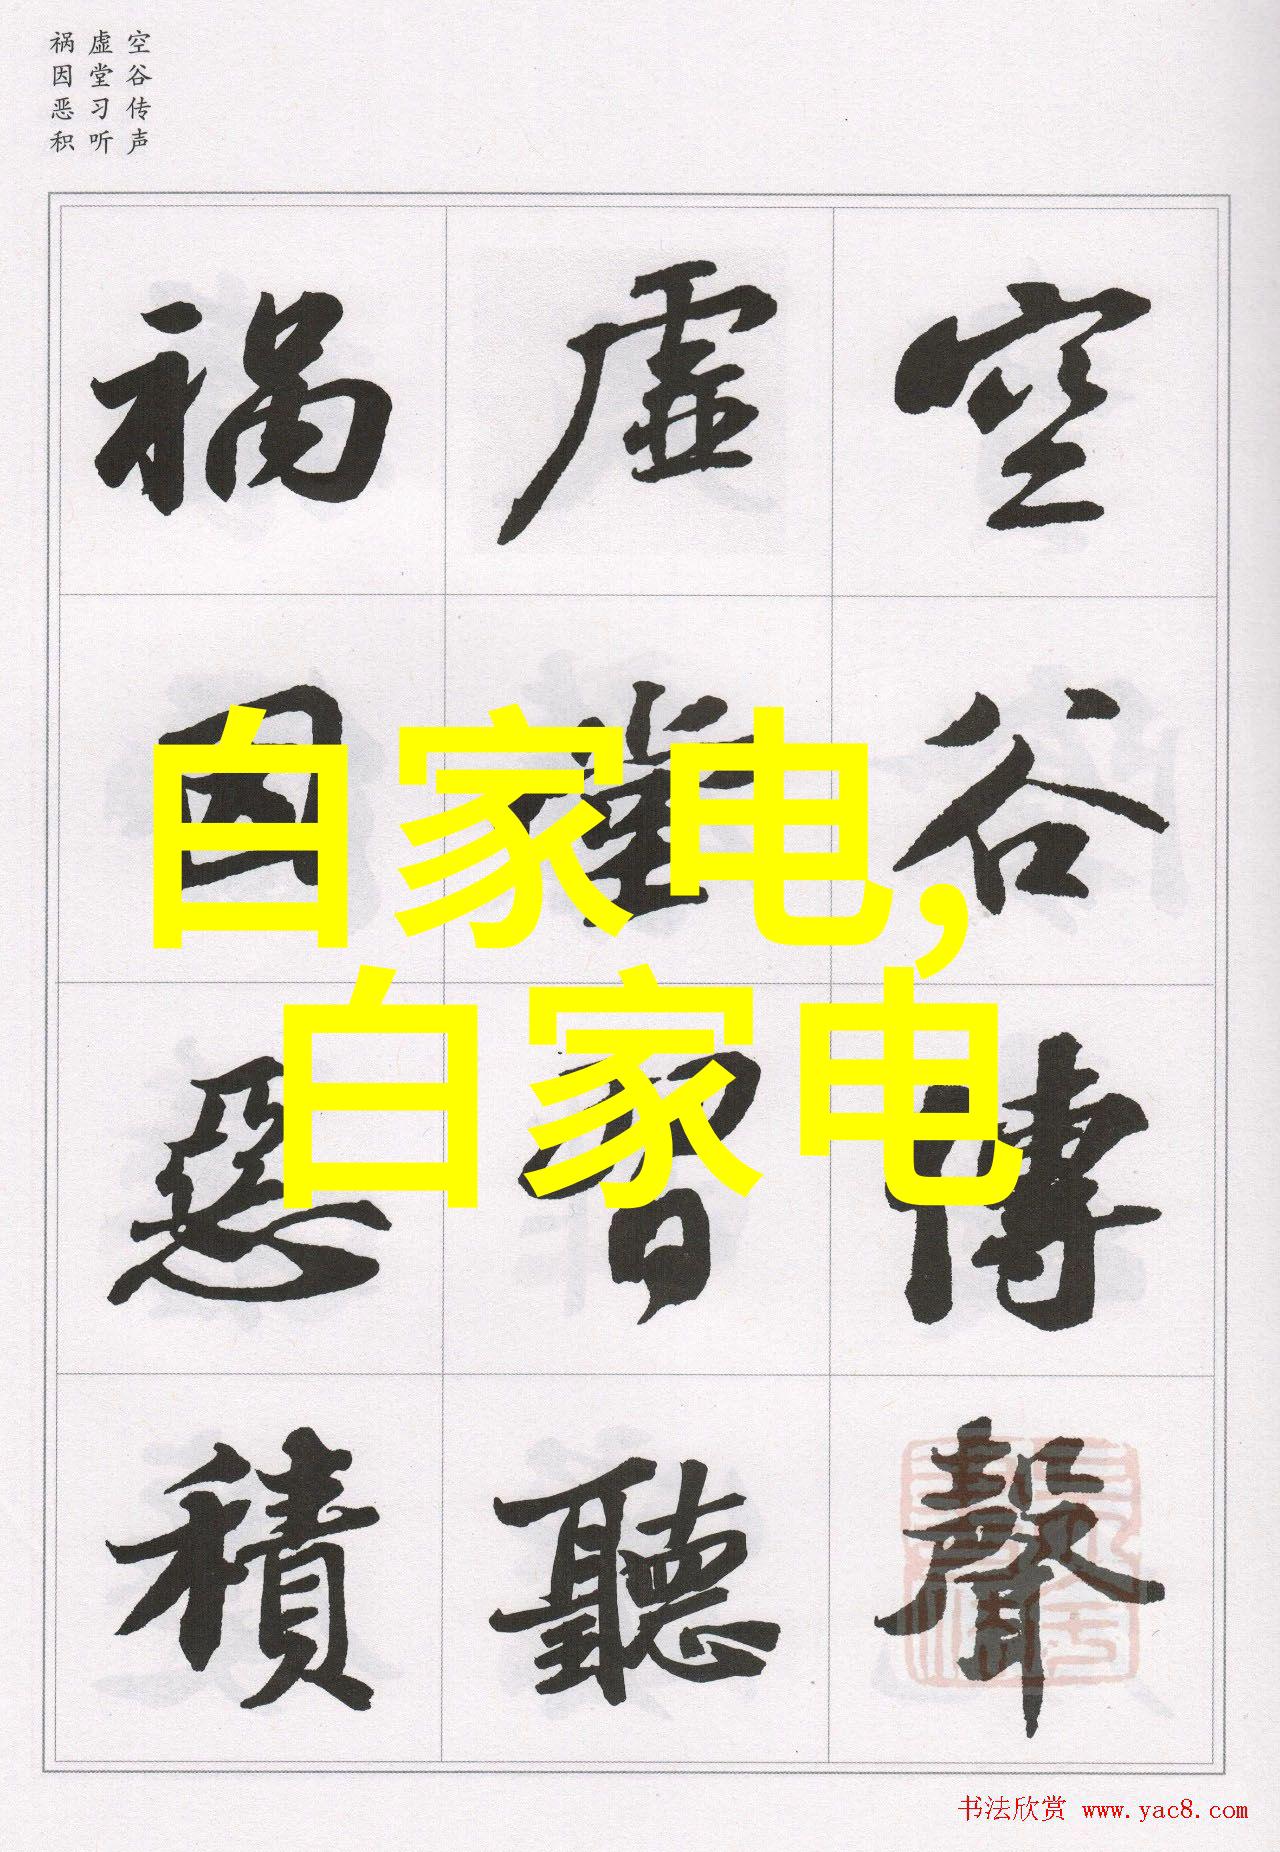 空谷传声
虚堂习听
祸因恶积
空谷傳聲
虚堂習聽
禍因惡積
白家电,
白家电
书法欣赏 www.yac8.com